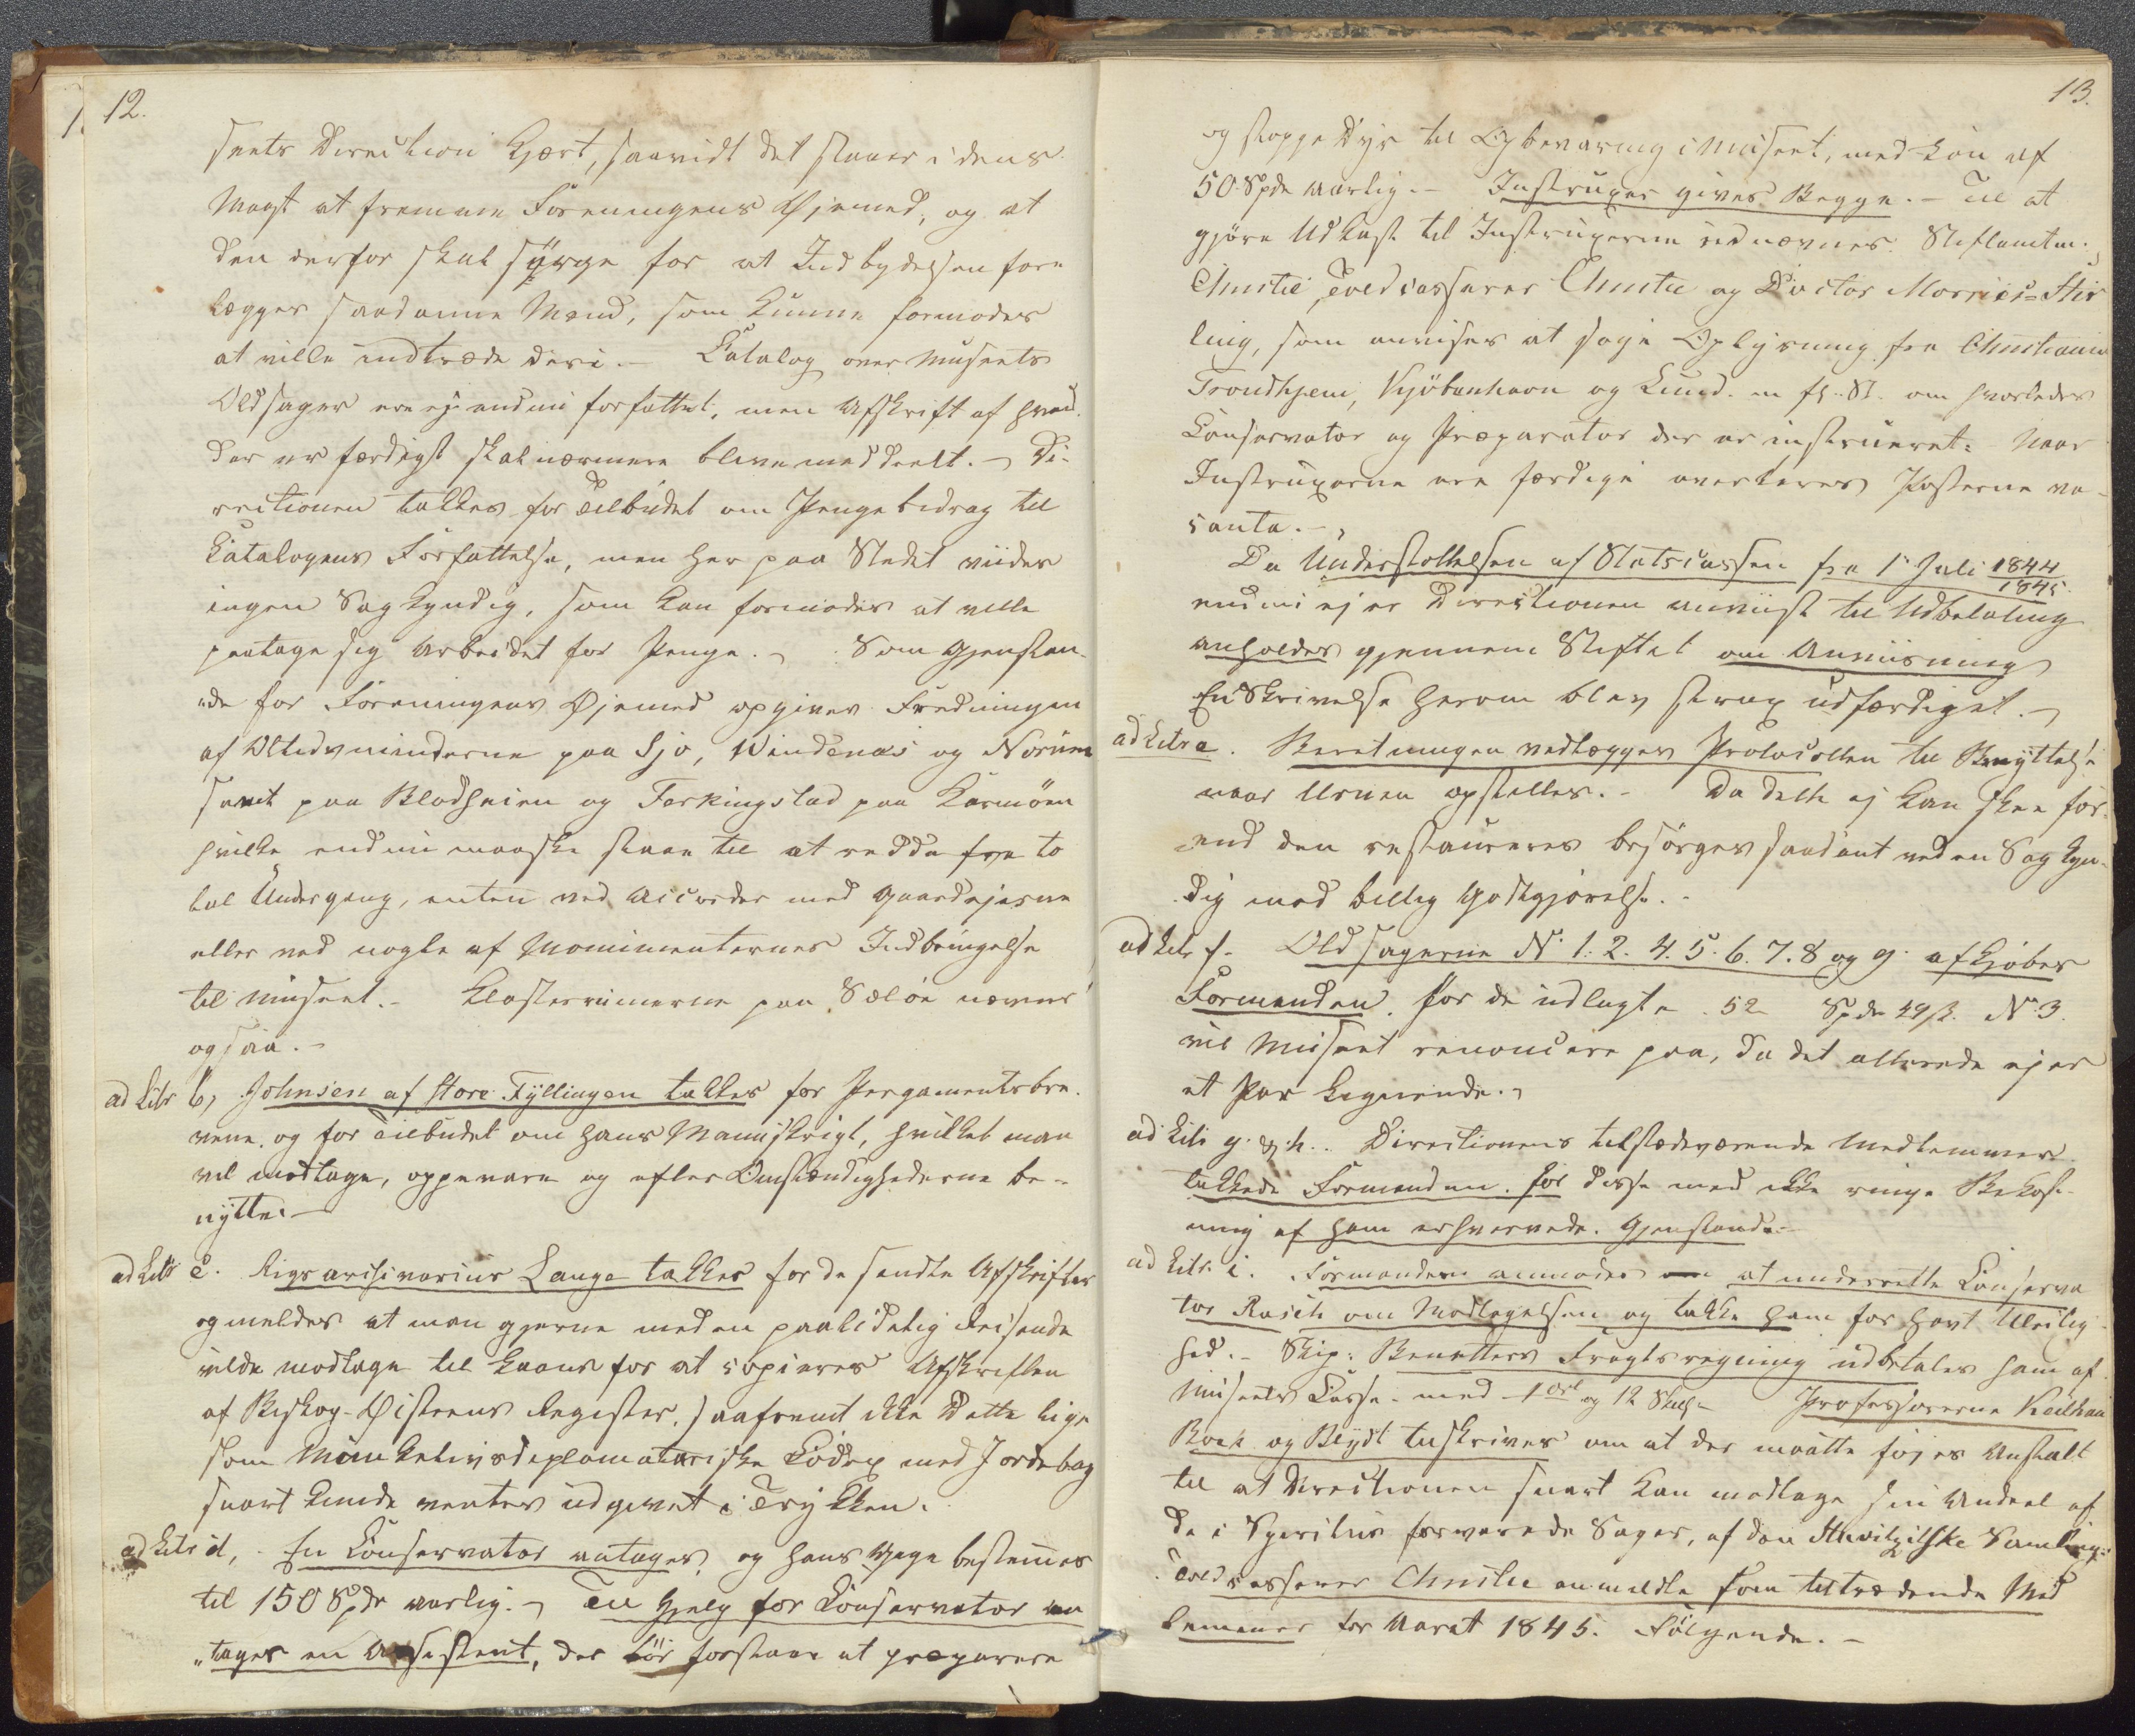 12.
seets Direction kjært, saavidt det staaer i dens
Magt at fremme Foreningens Øjemed, og at
den derfor skal sørge for at Indbydelsen fore
lægges saadanne Mænd, som kunne formodes
at ville indtræde deri. – Catalog over Museets
Oldsager ere ej endnu forfattet, men Afskrift af hvad
der er færdigt skal nærmere blive meddeelt. – Di-
rectionen takkes for Tilbudet om Pengebidrag til
Catalogens Forfattelse, men her paa Stedet viides
ingen Sagkyndig, som kan formodes at ville
paatage sig Arbeidet for Penge. – Som Gjenstan-
„de for Foreningens Øjemed opgives Fredningen
af Oltidsminderne paa Sjo, Windenæs og Norum
samt paa Blodheien og Ferkingstad paa Karmöen
hvilke endnu maaske staae til at redde fra to
tal Undergang, enten ved Accorder med Gaardejerne
eller ved nogle af Monimenternes Indbringelse
til Museet. – Klosterruinerne paa Sæløe nævnes
ogsaa. –
ad Litr b, Johnsen af store Fyllingen takkes for Pergamentsbre-
vene og for Tilbudet om hans Manuskript, hvilket man
vil modtage, oppevare og efter Omstændighederne be-
nytte. –
ad Litr c. Rigsarchivarius Lange takkes for de sendte Afskrifter
og meldes at man gjerne med en paalidelig Reisende
vilde modtage til Laans for at copieres Afskriften
af Biskop Øisteens Register, saafremt ikke Dette lige
som Munkelivsdeplomatariske Codex med Jordebog
snart kunde ventes udgivet i Trykken.
ad Litr d, – En Conservator antages og hans Gage bestemmes
til 150 Spdr aarlig. – Til Hjelp for Conservator an
„tages en Assistent, der bør forstaae at præparere
13.
og stoppe Dyr til Opbevaring i Museet, med Løn af
50 Spdr aarlig. – Instruxer gives Begge. – Til at
gjöre Udkast til Instruxerne udnævnes Stiftamtm.
Christie, Toldcasserer Christie og Doctor Morrier-Stir
ling, som anvises at søge Oplysning fra Christiania
Trondhjem, Kjöbenhavn og Lund m fl. St. om hvorledes
Conservator og Præparator der er instrueret. Naar
Instruxerne ere færdige averteres Posterne va-
cante. –
Da Understøttelsen af Statscassen fra 1 Juli 1844/1845
endnu ej er Directionen anviist til Udbetaling
anholdes gjennem Stiftet om Anviisning
En Skrivelse herom blev strax udfærdiget. –
ad Litr e. Beretningen vedlægges Protocollen til Benyttelse
naar Urnen opstilles. – Da dette ej kan skee för-
end den restaureres besörges saadant ved en Sagkyn-
dig mod billig Godtgjörelse. –
ad Litr f. Oldsagerne No 1. 2. 4. 5. 6. 7. 8 og 9. afkjöbes
Formanden for de udlagte 52 Spdr 29 ß. No 3.
vil Museet renoncere paa, da det allerede ejer
et Par lignende. –
ad Litr g. & h. Directionens tilstædeværende Medlemmer
takkede Formanden for disse med ikke ringe Bekost-
ning af ham erhvervede Gjenstande. –
ad Litr. i. Formanden anmodes om at underrette Conserva
tor Rasch om Modtagelsen og takke ham for havt Uleilig-
hed. – Skip: Benetters Fragtsregning udbetales ham af
Museets Casse med 1 Ort og 12 Skill. Professorerne Keilhau
Boeck og Blydt tilskrives om at der maatte föjes Anstalt
til at Directionen snart kan modtage sin Andeel af
de i Spiritus forvarede Sager, af den Samling.
Toldcasserer Christie anmeldte som tiltrædende Med
lemmer for Aaret 1845. Fölgende. –